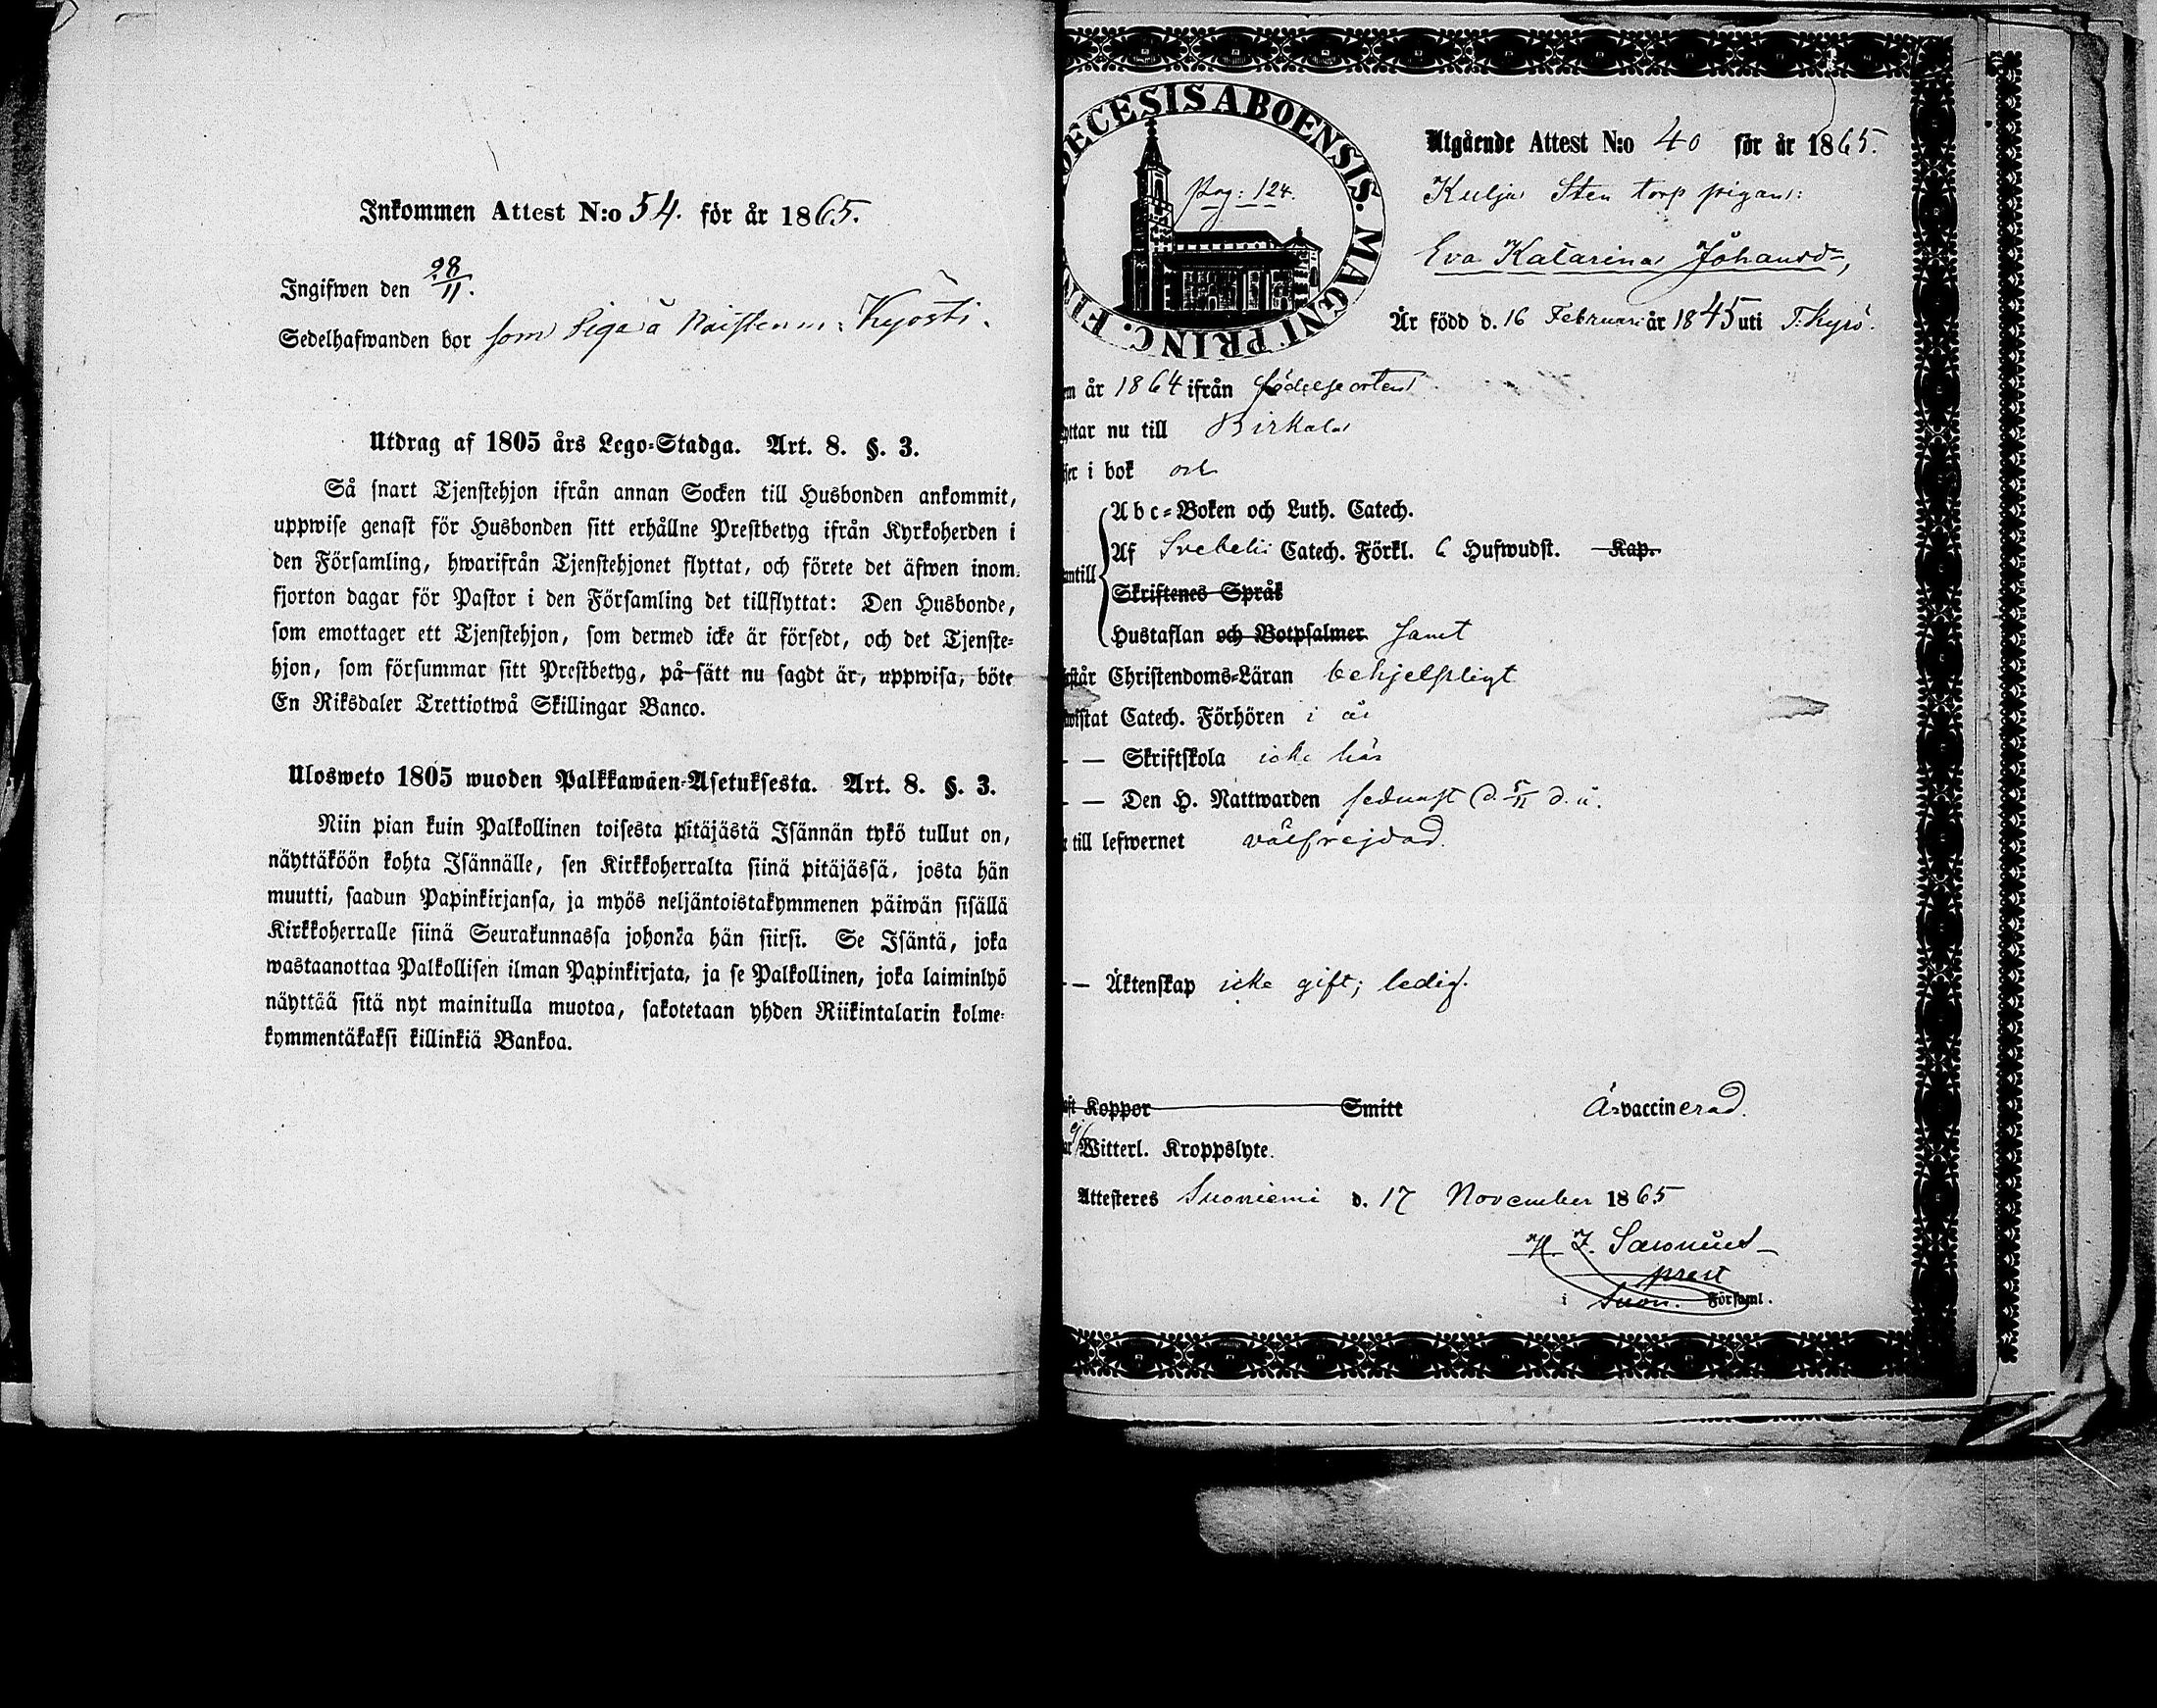 Inkommen Attest N:o 54. för år 1865.
Ingifwen den 28/11.
Sedelhafwanden bor som Piga å Kyösti.
Utdrag af 1805 års Lego-Stadga. Art. 8. §. 3.
Så snart Tjenstehjon ifrån annan Socken till Husbonden ankommit,
uppwise genast för Husbonden sitt erhållne Prestbetyg ifrån Kyrkoherden i
den Församling, hwarifrån Tjenstehjonet flyttat, och förete det äfwen inom
fjorton dagar för Pastor i den Församling det tillflyttat: Den Husbonde,
som emottager ett Tjenstehjon, som dermed icke är försedt, och det Tjenste-
hjon, som försummar sitt Prestbetyg, på sätt nu sagdt är, uppwisa, böte
En Riksdaler Trettiotwå Skillingar Banco.
Ulosweto 1805 wuoden Palkkawäen-Asetuksesta. Art. 8. §. 3.
Niin pian kuin Palkollinen toisesta pitäjästä Isännän tykö tullut on,
näyttäköön kohta Isännälle, sen Kirkkoherralta siinä pitäjässä, josta hän
muutti, saadun Papinkirjansa, ja myös neljäntoistakymmenen päiwän sisällä
Kirkkoherralle siinä Seurakunnassa johonka hän siirsi. Se Isäntä, joka
wastaanottaa Palkollisen ilman Papinkirjata, ja se Palkollinen, joka laiminlyö
näyttää sitä nyt mainitulla muotoa, sakotetaan yhden Riikintalarin kolme-
kymmentäkaksi killinkiä Bankoa.
ŒCESIS ABOENSIS. MAGNI PRINC. FIN
Pag: 124.
Utgående Attest N:o 40 för år 1865.
Kulja Sten torp pigan:
Eva Katarina Johansd=,
Är född d. 16 Februari år 1845 uti T:Kyrö.
m år 1864 ifrån födelseorten
yttar nu till Birkala
jer i bok
Abc-Boken och Luth. Catech.
Af Svebelii Catech. Förkl. 6 Hufwudst. Kap.
antill
Skriftenes Språk
Hustaflan och Botpsalmer. samt
står Christendoms-Läran behjelpligt
wistat Catech. Förhören i år
– – Skriftskola icke här
– – Den H. Nattwarden sednast d. 5/11 d. å.
till lefwernet välfrejdad.
– – Äktenskap icke gift; ledig.
Koppor Smitt Är vaccinerad.
Witterl. Kroppslyte.
Attesteres Suoniemi d. 17 November 1865
prest
i Suon. Församl.